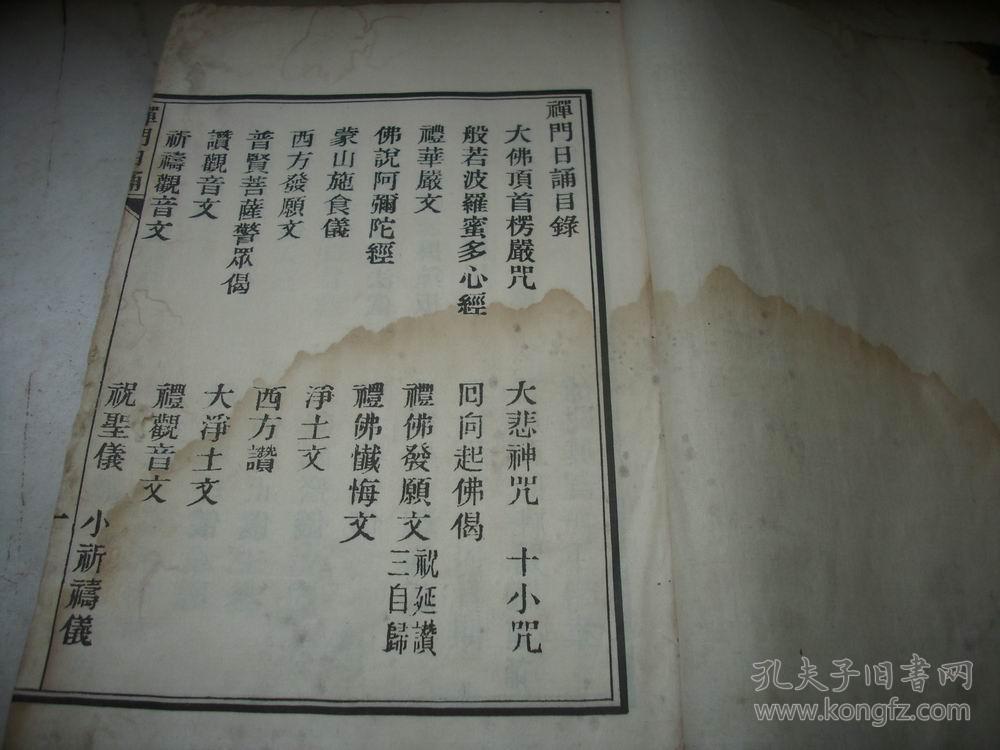 禪門日誦目錄
大佛頂首楞嚴咒 大悲神咒 十小咒
般若波羅蜜多心經 回向起佛偈
禮華嚴文 禮佛發願文 祝延讚 三自歸
佛說阿彌陀經 禮佛懺悔文
蒙山施食儀 淨土文
西方發願文 西方讚
普賢菩薩警眾偈 大淨土文
讚觀音文 禮觀音文
祈禱觀音文 祝聖儀 小祈禱儀
禪門日誦 一
孔夫子旧书网
www.kongfz.com